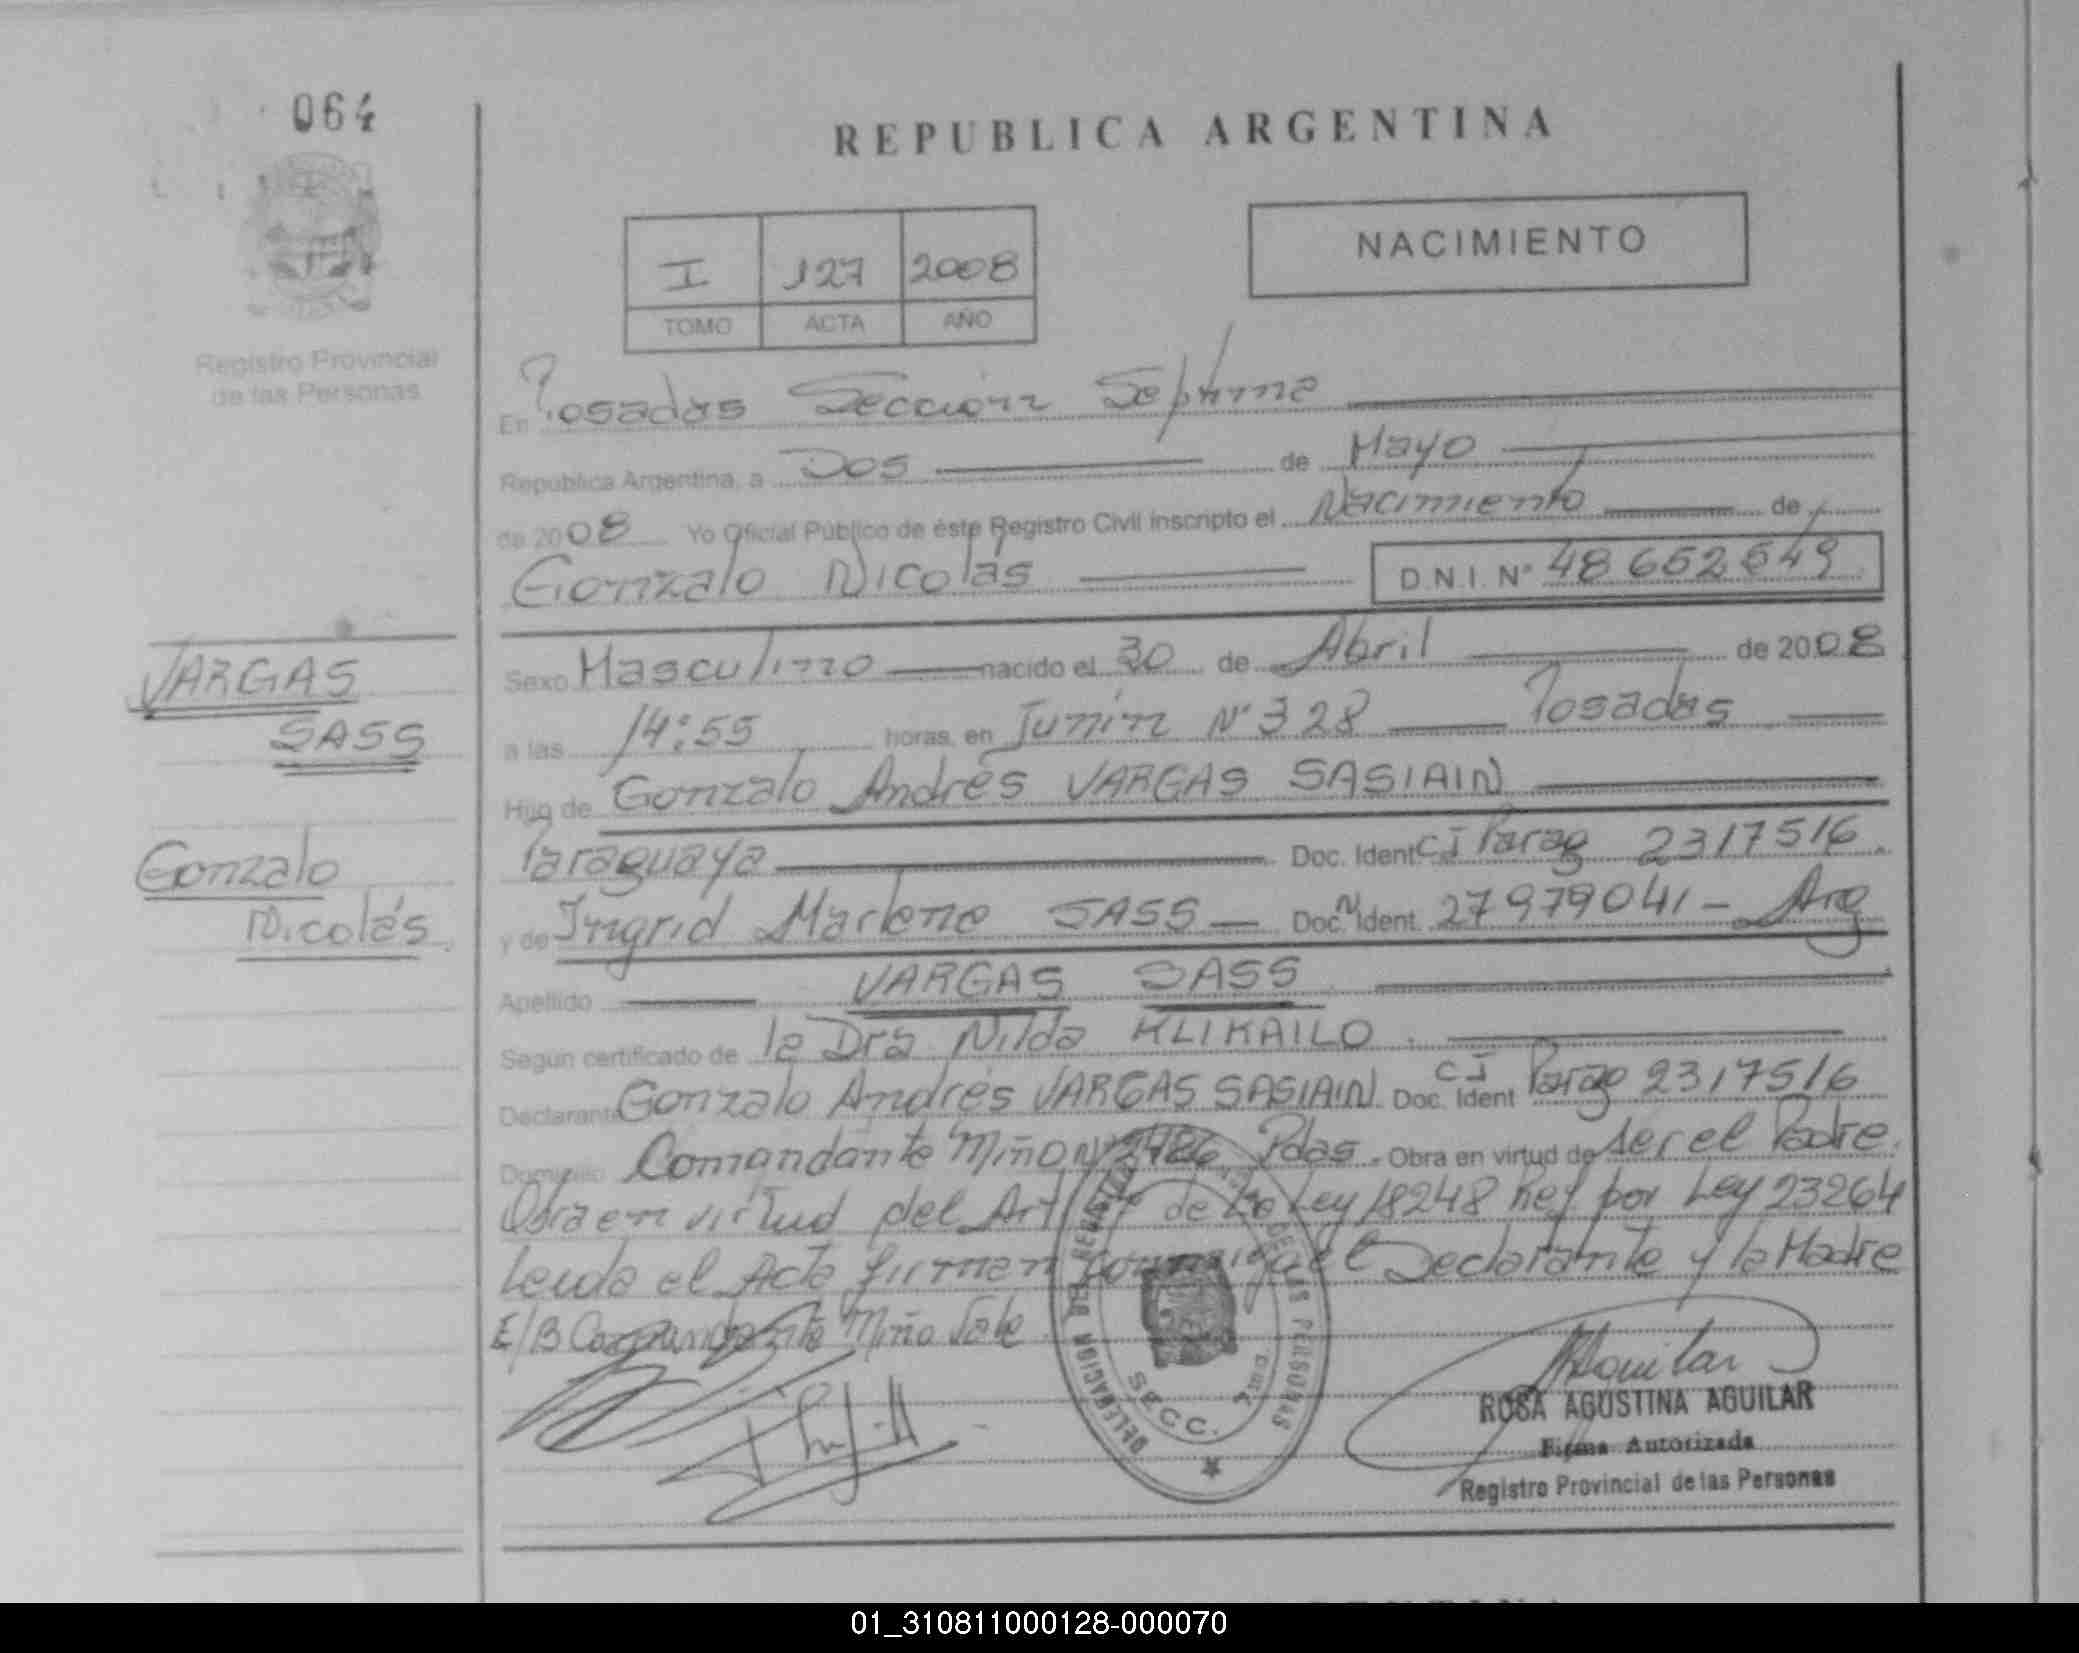 064
REPUBLICA ARGENTINA
I 127 2008
TOMO ACTA AÑO
NACIMIENTO
Registro Provincial
de las Personas
En Posadas Sección Séptima
Republica Argentina, a Dos de Mayo
de 2008 Yo Oficial Público de éste Registro Civil inscripto el Nacimiento de
Gonzalo Nicolás D.N.I. Nº 48 652 549
VARGAS
SASS
Gonzalo
Nicolás
Sexo Masculino nacido el 30 de Abril de 2008
a las 14:55 horas, en Junín Nº 328 Posadas
Hijo de Gonzalo Andrés VARGAS SASIAIN
Paraguaya Doc. Ident CI Parag 2317516
y de Ingrid Marlene SASS Doc. Ident. 27979041 - Arg
Apellido VARGAS SASS
Según certificado de la Dra Nilda KLIKAILO
Declarante Gonzalo Andrés VARGAS SASIAIN Doc. Ident CI Parag 2317516
Domicilio Comandante Miño Nº 2486 Pdas. Obra en virtud de ser el Padre.
Obra en virtud del Art de la Ley 18248 Ref por Ley 23264
Leida el Acta firman conmigo el Declarante y la Madre
E/B Comandante Miño Vale
DELEGACION DEL REGISTRO DE LAS PERSONAS
SECC.
ROSA AGUSTINA AGUILAR
Firma Autorizada
Registro Provincial de las Personas
01_310811000128-000070